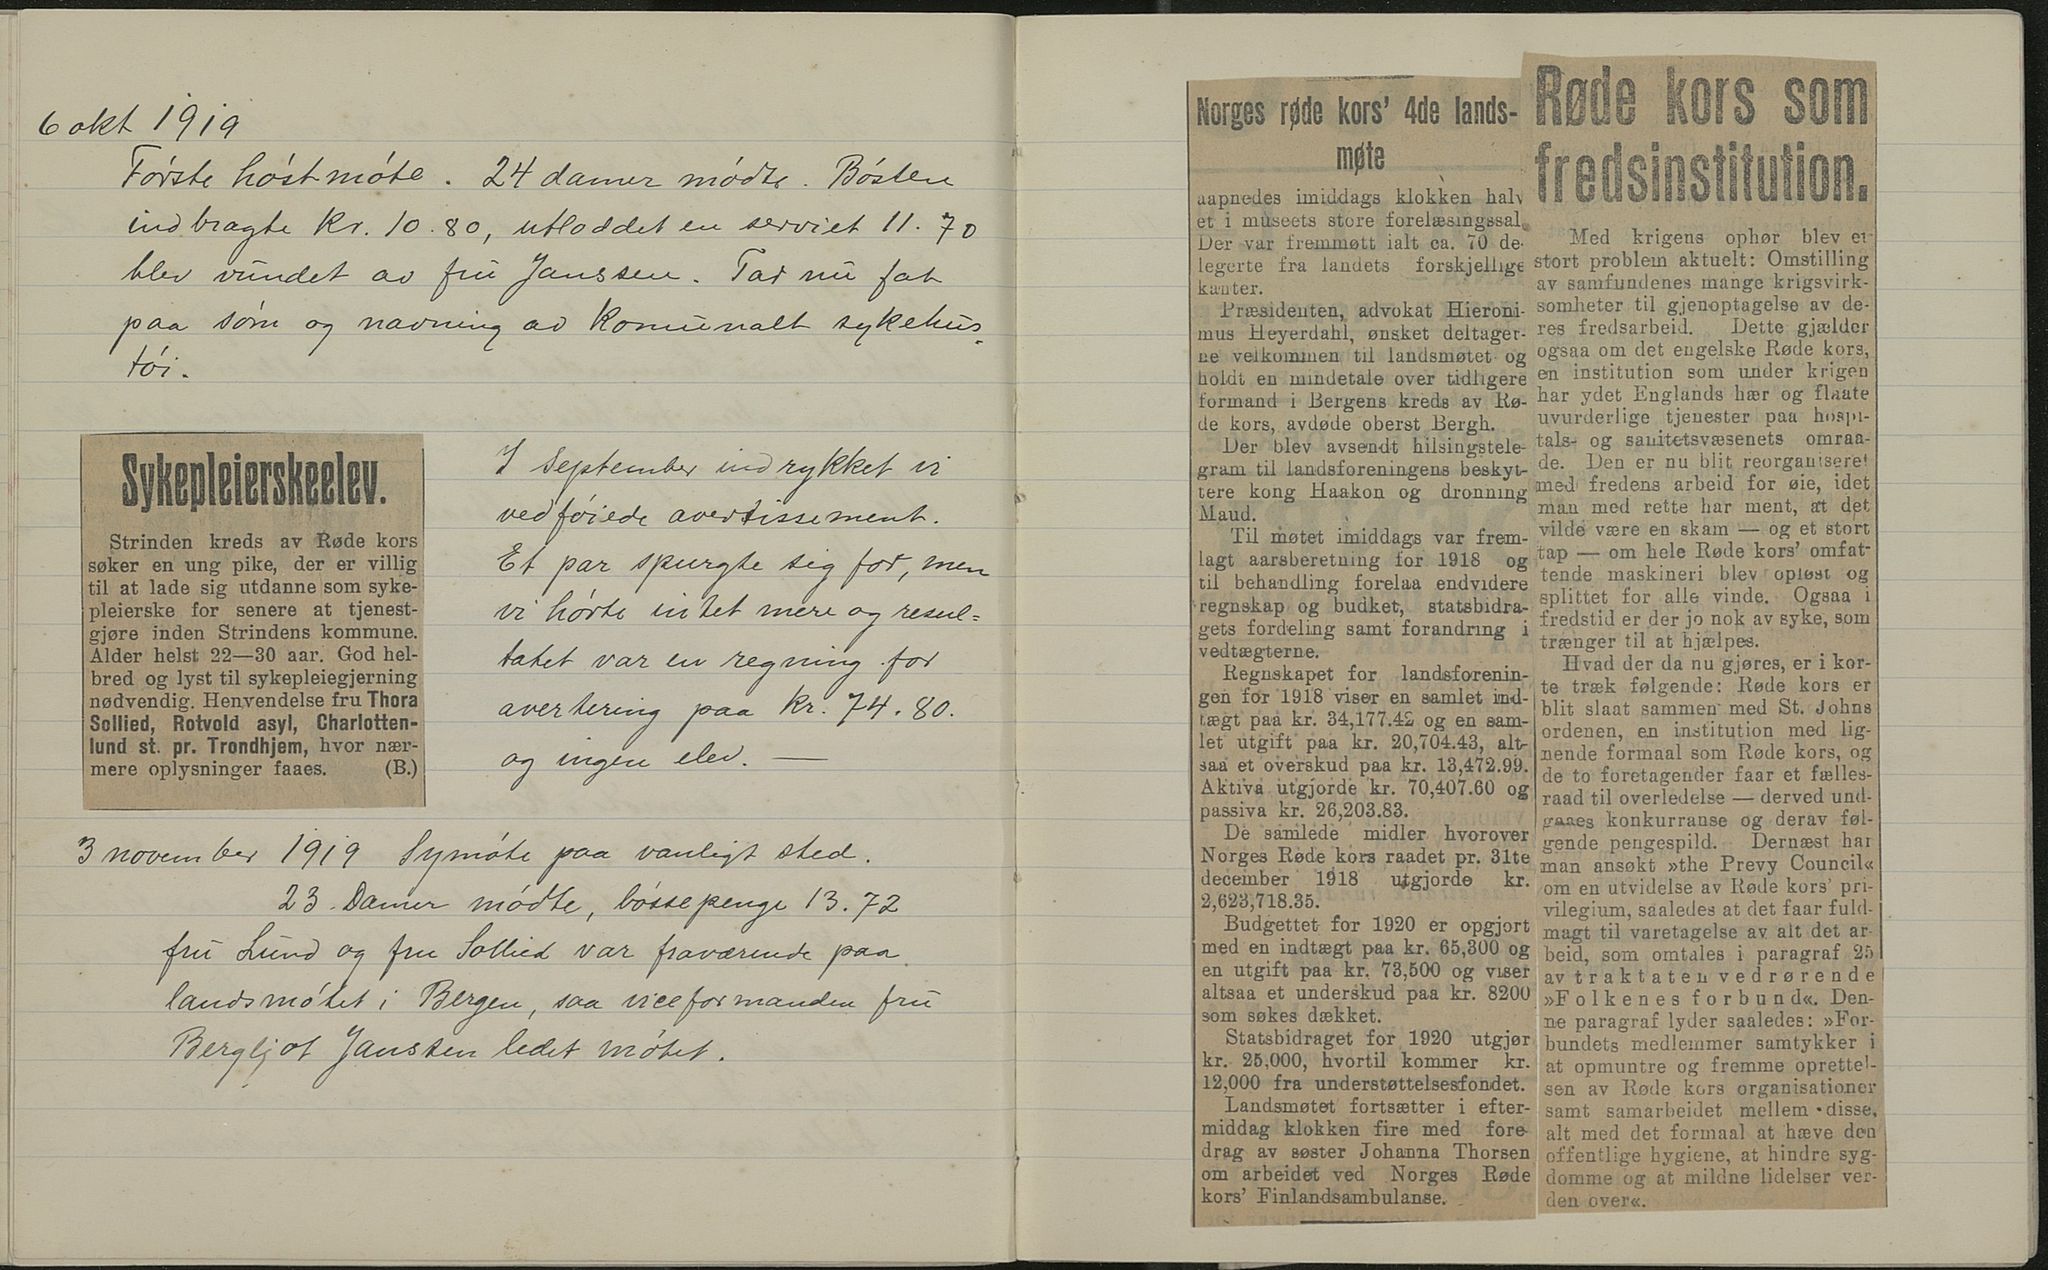 6 okt 1919
Første høstmøte. 24 damer mødte. Bøsten
indbragte Kr. 10.80, utloddet en serviet 11.70
blev vundet av fru Janssen. Tar nu fat
paa søm og navning av Komunalt sykehus-
tøi.
Sykepleierskeelev.
Strinden kreds av Røde kors
søker en ung pike, der er villig
til at lade sig utdanne som syke-
pleierske for senere at tjenest-
gjøre inden Strindens kommune.
Alder helst 22—30 aar. God hel-
bred og lyst til sykepleiegjerning
nødvendig. Henvendelse fru Thora
Sollied, Rotvold asyl, Charlotten-
lund st. pr. Trondhjem, hvor nær-
mere oplysninger faaes. (B.)
I september indrykket vi
vedføiede avertissement.
Et par spurgte sig for, men
vi hørte intet mere og resul=
tatet var en regning for
avertering paa Kr. 74.80.
og ingen elev. —
3 november 1919 Symøte paa vanligt sted.
23 Damer mødte, bøssepenge 13.72
fru Lund og fru Sollied var fraværende paa
landsmøtet i Bergen, saa viceformanden fru
Bergljot Janssen ledet møtet.
Norges røde kors' 4de lands-
møte
aapnedes imiddags klokken halv
et i museets store forelæsingssal.
Der var fremmøtt ialt ca. 70 de-
legerte fra landets forskjellige
kanter.
Præsidenten, advokat Hieroni-
mus Heyerdahl, ønsket deltager-
ne velkommen til landsmøtet og
holdt en mindetale over tidligere
formand i Bergens kreds av Rø-
de kors, avdøde oberst Bergh.
Der blev avsendt hilsingstele-
gram til landsforeningens beskyt-
tere kong Haakon og dronning
Maud.
Til møtet imiddags var frem-
lagt aarsberetning for 1918 og
til behandling forelaa endvidere
regnskap og budket, statsbidra-
gets fordeling samt forandring i
vedtægterne.
Regnskapet for landsforenin-
gen for 1918 viser en samlet ind-
tægt paa kr. 34,177.42 og en sam-
let utgift paa kr. 20,704.43, alt-
saa et overskud paa kr. 13,472.99.
Aktiva utgjorde kr. 70,407.60 og
passiva kr. 26,203.83.
De samlede midler hvorover
Norges Røde kors raadet pr. 31te
december 1918 utgjorde kr.
2,623,718.35.
Budgettet for 1920 er opgjort
med en indtægt paa kr. 65,300 og
en utgift paa kr. 73,500 og viser
altsaa et underskud paa kr. 8200
som søkes dækket.
Statsbidraget for 1920 utgjør
kr. 25,000, hvortil kommer kr.
12,000 fra understøttelsesfondet.
Landsmøtet fortsætter i efter-
middag klokken fire med fore
drag av søster Johanna Thorsen
om arbeidet ved Norges Røde
kors' Finlandsambulanse.
Røde kors som
fredsinstitution.
Med krigens ophør blev et
stort problem aktuelt: Omstilling
av samfundenes mange krigsvirk-
somheter til gjenoptagelse av de-
res fredsarbeid. Dette gjælder
ogsaa om det engelske Røde kors,
en institution som under krigen
har ydet Englands hær og flaate
uvurderlige tjenester paa hospi-
tals- og sanitetsvæsenets omraa-
de. Den er nu blit reorganiseret
med fredens arbeid for øie, idet
man med rette har ment, at det
vilde være en skam — og et stort
tap — om hele Røde kors' omfat-
tende maskineri blev opløst og
splittet for alle vinde. Ogsaa i
fredstid er der jo nok av syke, som
trænger til at hjælpes.
Hvad der da nu gjøres, er i kor-
te træk følgende: Røde kors er
blit slaat sammen med St. Johns
ordenen, en institution med lig-
nende formaal som Røde kors, og
de to foretagender faar et fælles-
raad til overledelse — derved und-
gaaes konkurranse og derav føl-
gende pengespild. Dernæst har
man ansøkt »the Prevy Council«
om en utvidelse av Røde kors' pri-
vilegium, saaledes at det faar fuld-
magt til varetagelse av alt det ar-
beid, som omtales i paragraf 25
av traktaten vedrørende
»Folkenes forbund«. Den-
ne paragraf lyder saaledes: »For-
bundets medlemmer samtykker i
at opmuntre og fremme oprettel-
sen av Røde kors organisationer
samt samarbeidet mellem disse,
alt med det formaal at hæve den
offentlige hygiene, at hindre syg-
domme og at mildne lidelser ver-
den over«.